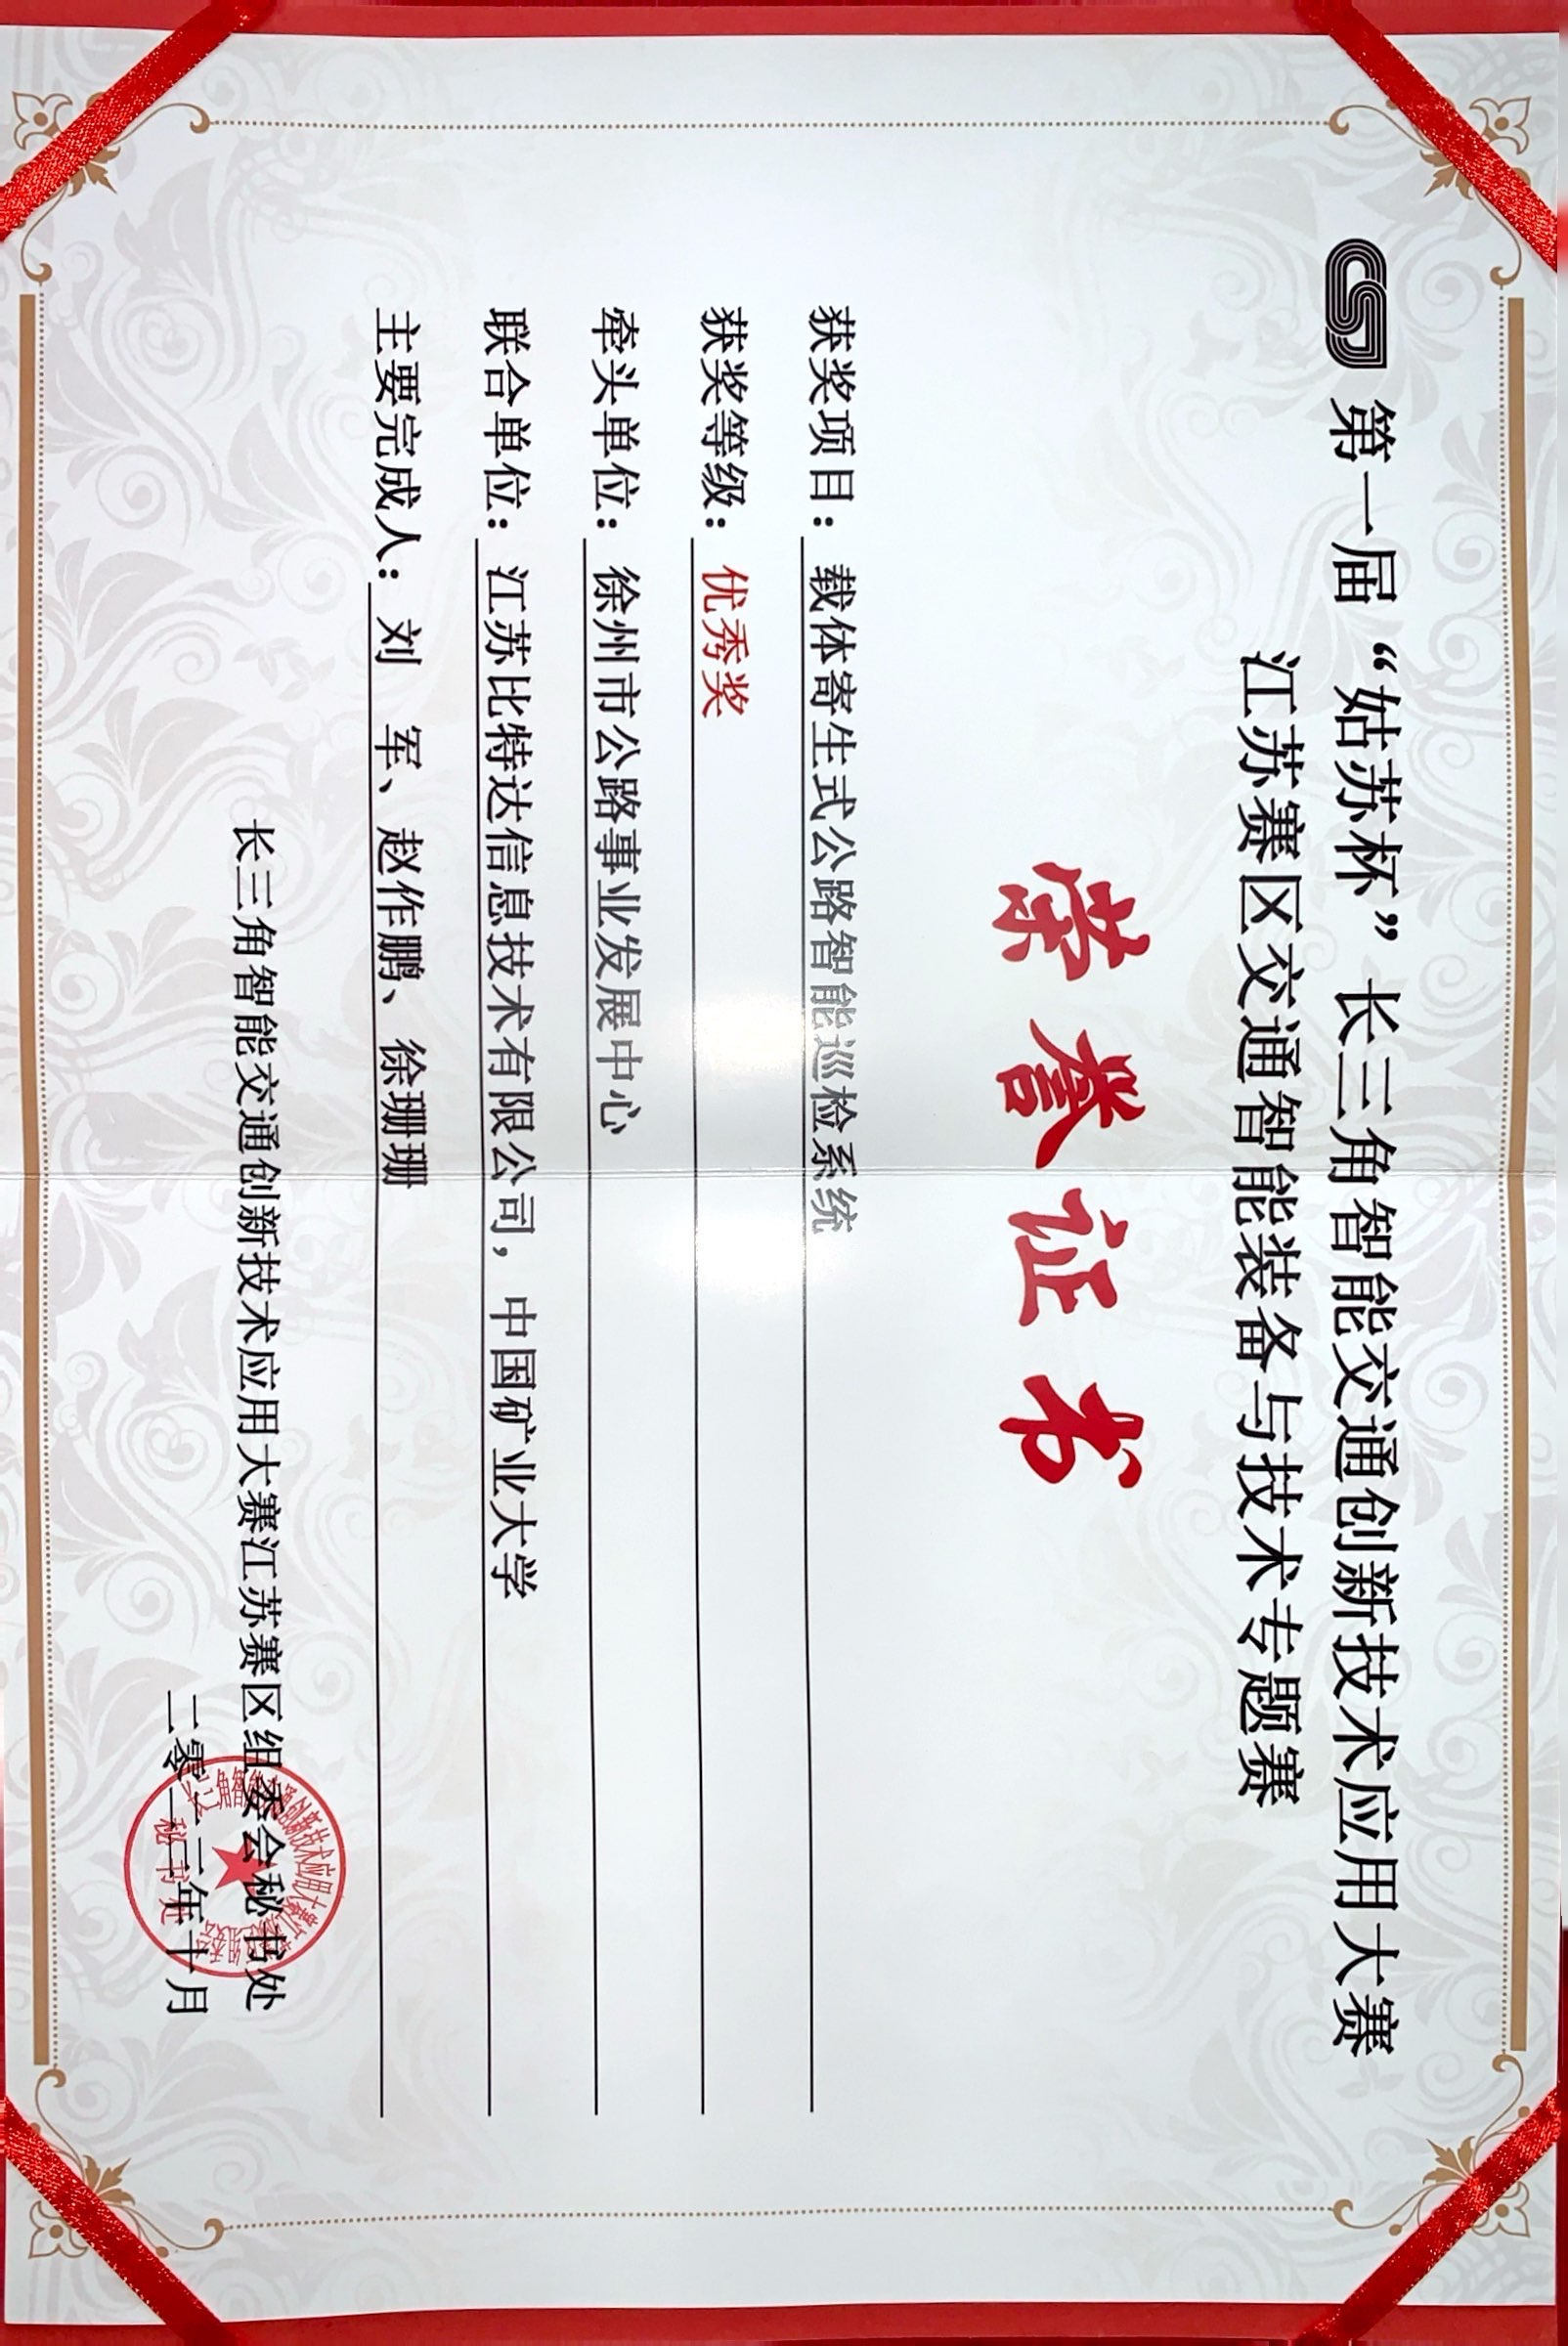 第一届“姑苏杯”长三角智能交通创新技术应用大赛
江苏赛区交通智能装备与技术专题赛
荣誉证书
获奖项目：载体寄生式公路智能巡检系统
获奖等级：优秀奖
牵头单位：徐州市公路事业发展中心
联合单位：江苏比特达信息技术有限公司，中国矿业大学
主要完成人：刘　军、赵作鹏、徐珊珊
长三角智能交通创新技术应用大赛江苏赛区组委会秘书处
二零二二年十月